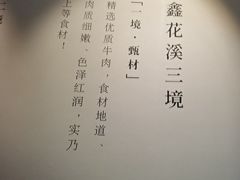 鑫花溪三境
「一境·甄材」
精选优质牛肉，食材地道、
肉质细嫩、色泽红润，实乃
上等食材！